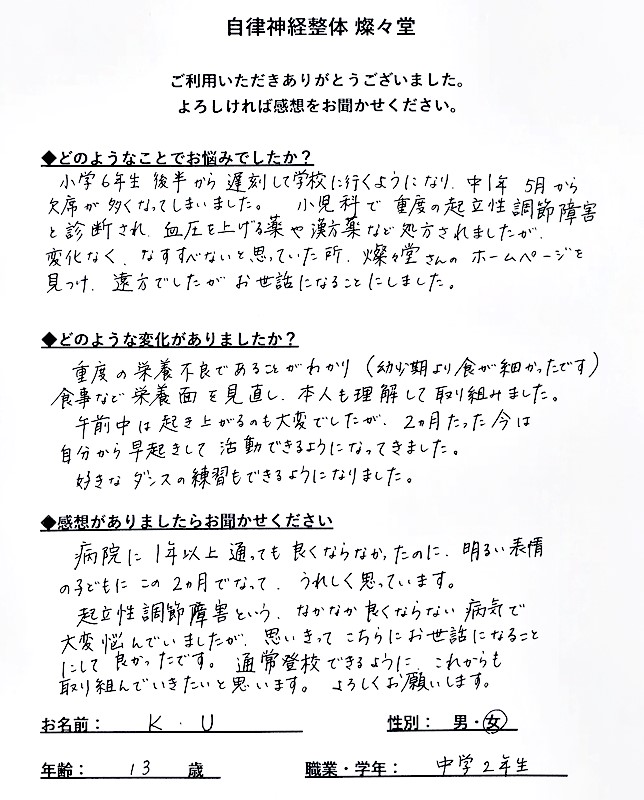 自律神経整体 燦々堂
ご利用いただきありがとうございました。
よろしければ感想をお聞かせください。
◆どのようなことでお悩みでしたか？
小学6年生 後半から 遅刻して学校に行くようになり、中1年 5月から
欠席が 多くなってしまいました。 小児科で 重度の起立性調節障害
と診断され、血圧を上げる薬や漢方薬など処方されましたが、
変化なく、なすすべないと思っていた所、燦々堂さんの ホームページを
見つけ、遠方でしたが お世話になることにしました。
◆どのような変化がありましたか？
重度の栄養不良であることがわかり（幼少期より食が細かったです）
食事など栄養面を見直し、本人も理解して取り組みました。
午前中は起き上がるのも大変でしたが、2ヵ月たった今は
自分から早起きして活動できるようになってきました。
好きなダンスの練習もできるようになりました。
◆感想がありましたらお聞かせください
病院に 1年以上 通っても 良くならなかったのに、明るい表情
の子どもに この 2ヵ月でなって、うれしく思っています。
起立性調節障害という、なかなか良くならない病気で
大変悩んでいましたが、思いきって こちらにお世話になること
にして 良かったです。 通常登校できるように、これからも
取り組んでいきたいと思います。 よろしくお願いします。
お名前： K・U 性別： 男・女
年齢： 13 歳 職業・学年： 中学2年生